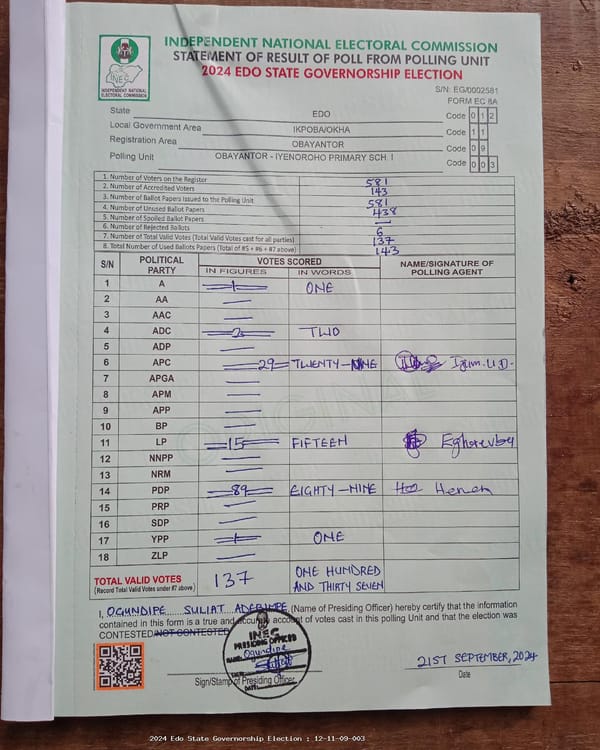 INDEPENDENT NATIONAL ELECTORAL COMMISSION
STATEMENT OF RESULT OF POLL FROM POLLING UNIT
2024 EDO STATE GOVERNORSHIP ELECTION
INEC
INDEPENDENT NATIONAL
ELECTORAL COMMISSION
S/N: EG/0002581
FORM EC 8A
State EDO Code 0 1 2
Local Government Area IKPOBA/OKHA Code 1 1
Registration Area OBAYANTOR Code 0 9
Polling Unit OBAYANTOR - IYENOROHO PRIMARY SCH. I Code 0 0 3
1. Number of Voters on the Register 581
2. Number of Accredited Voters 143
3. Number of Ballot Papers Issued to the Polling Unit 581
4. Number of Unused Ballot Papers 438
5. Number of Spoiled Ballot Papers —
6. Number of Rejected Ballots 6
7. Number of Total Valid Votes (Total Valid Votes cast for all parties) 137
8. Total Number of Used Ballots Papers (Total of #5 + #6 + #7 above) 143
S/N POLITICAL PARTY VOTES SCORED NAME/SIGNATURE OF POLLING AGENT
IN FIGURES IN WORDS
1 A 1 ONE
2 AA —
3 AAC —
4 ADC 2 TWO
5 ADP —
6 APC 29 TWENTY-NINE
7 APGA —
8 APM —
9 APP —
10 BP —
11 LP 15 FIFTEEN
12 NNPP —
13 NRM —
14 PDP 89 EIGHTY-NINE
15 PRP —
16 SDP —
17 YPP 1 ONE
18 ZLP —
TOTAL VALID VOTES 137 ONE HUNDRED
(Record Total Valid Votes under #7 above) AND THIRTY SEVEN
I, OGUNDIPE SULIAT ADEBIMPE (Name of Presiding Officer) hereby certify that the information
contained in this form is a true and accurate account of votes cast in this polling Unit and that the election was
CONTESTED/NOT CONTESTED
INEC
PRESIDING OFFICER
NAME: Ogundipe
DATE:
21ST SEPTEMBER, 2024
Sign/Stamp of Presiding Officer Date
2024 Edo State Governorship Election : 12-11-09-003